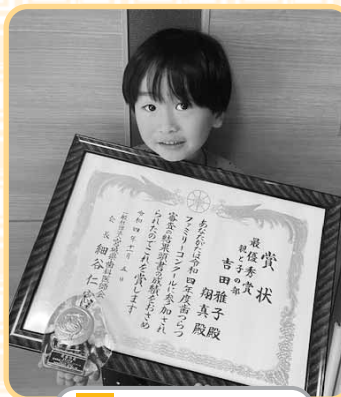 賞状
最優秀賞
親と子の部
吉田雅子殿
翔真殿
あなたがたは令和四年度歯つらつ
ファミリーコンクールに参加され
審査の結果頭書の成績をおさめ
られたのでこれを賞します
令和四年十一月五日
一般社団法人宮城県歯科医師会
会長 細谷仁